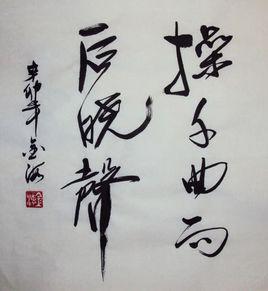 操千曲而
后晓声
辛卯年金海